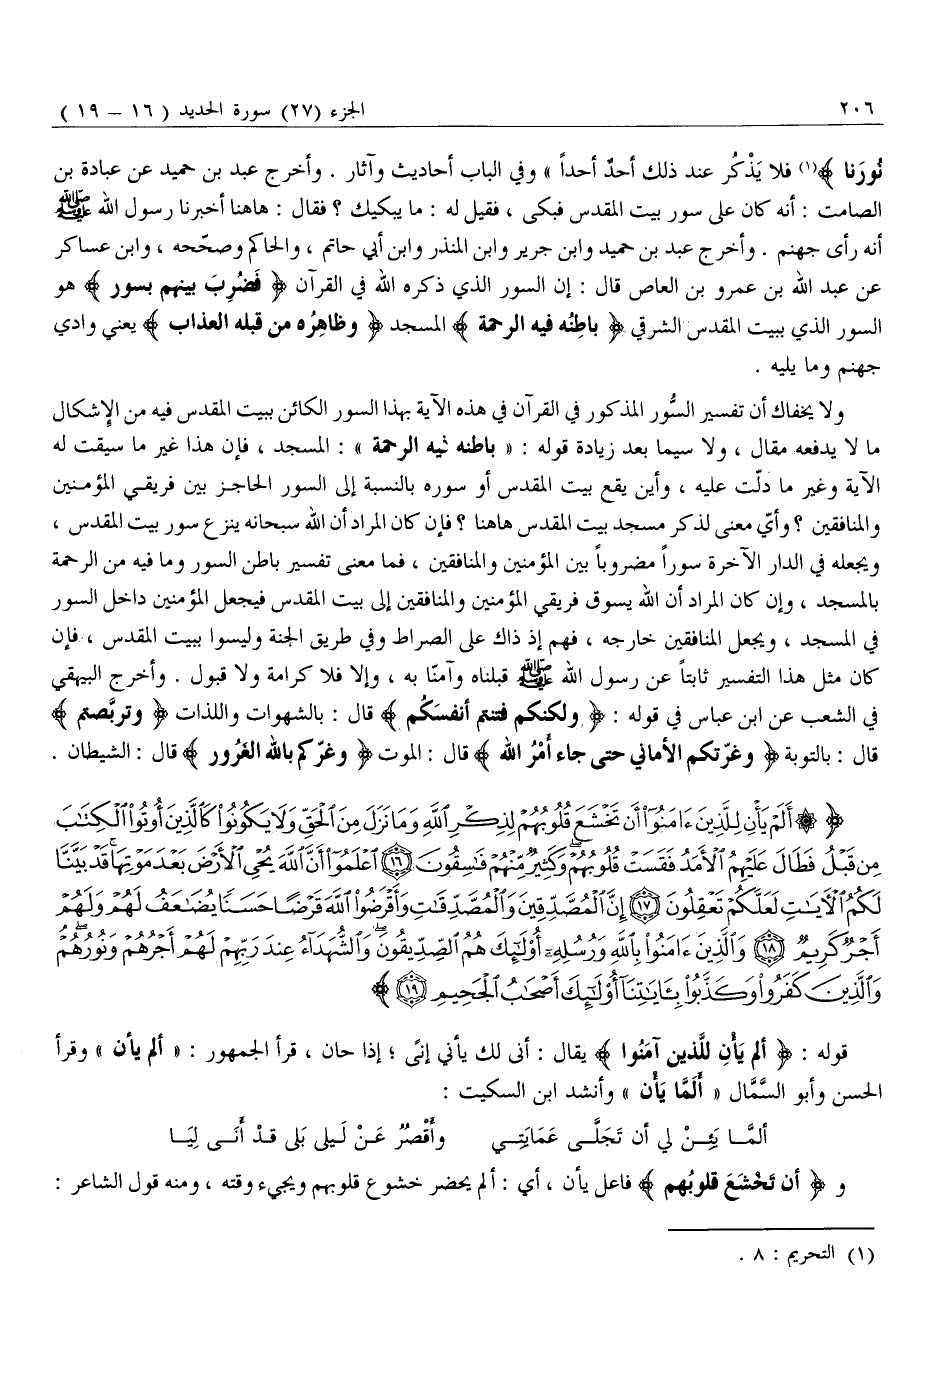 ٢٠٦ الجزء (٢٧) سورة الحديد ( ١٦ – ١٩ )
نُورَنا ﴾(١) فلا يَذْكُر عند ذلك أحدٌ أحداً » وفي الباب أحاديث وآثار . وأخرج عبد بن حميد عن عبادة بن
الصامت : أنه كان على سور بيت المقدس فبكى ، فقيل له : ما يبكيك ؟ فقال : هاهنا أخبرنا رسول الله ﷺ
أنه رأى جهنم . وأخرج عبد بن حميد وابن جرير وابن المنذر وابن أبي حاتم ، والحاكم وصحّحه ، وابن عساكر
عن عبد الله بن عمرو بن العاص قال : إن السور الذي ذكره الله في القرآن ﴿ فَضُرِبَ بينهم بسور ﴾ هو
السور الذي ببيت المقدس الشرقي ﴿ باطِنُه فيه الرحمة ﴾ المسجد ﴿ وظاهِرُه من قبله العذاب ﴾ يعني وادي
جهنم وما يليه .
ولا يخفاك أن تفسير السُّور المذكور في القرآن في هذه الآية بهذا السور الكائن ببيت المقدس فيه من الإِشكال
ما لا يدفعه مقال ، ولا سيما بعد زيادة قوله : « باطنه فيه الرحمة » : المسجد ، فإن هذا غير ما سيقت له
الآية وغير ما دلّت عليه ، وأين يقع بيت المقدس أو سوره بالنسبة إلى السور الحاجز بين فريقي المؤمنين
والمنافقين ؟ وأيّ معنى لذكر مسجد بيت المقدس هاهنا ؟ فإن كان المراد أن الله سبحانه ينزع سور بيت المقدس ،
ويجعله في الدار الآخرة سوراً مضروباً بين المؤمنين والمنافقين ، فما معنى تفسير باطن السور وما فيه من الرحمة
بالمسجد ، وإن كان المراد أن الله يسوق فريقي المؤمنين والمنافقين إلى بيت المقدس فيجعل المؤمنين داخل السور
في المسجد ، ويجعل المنافقين خارجه ، فهم إذ ذاك على الصراط وفي طريق الجنة وليسوا ببيت المقدس ، فإن
كان مثل هذا التفسير ثابتاً عن رسول الله ﷺ قبلناه وآمنّا به ، وإلا فلا كرامة ولا قبول . وأخرج البيهقي
في الشعب عن ابن عباس في قوله : ﴿ ولكنكم فتنتم أنفسَكُم ﴾ قال : بالشهوات واللذات ﴿ وتربَّصتم ﴾
قال : بالتوبة ﴿ وغرّتكم الأماني حتى جاء أمْرُ الله ﴾ قال : الموت ﴿ وغرّكم بالله الغَرُور ﴾ قال : الشيطان .
﴿ ۞ أَلَمْ يَأْنِ لِلَّذِينَ ءَامَنُوٓا۟ أَن تَخْشَعَ قُلُوبُهُمْ لِذِكْرِ ٱللَّهِ وَمَا نَزَلَ مِنَ ٱلْحَقِّ وَلَا يَكُونُوا۟ كَٱلَّذِينَ أُوتُوا۟ ٱلْكِتَٰبَ
مِن قَبْلُ فَطَالَ عَلَيْهِمُ ٱلْأَمَدُ فَقَسَتْ قُلُوبُهُمْ ۖ وَكَثِيرٌ مِّنْهُمْ فَٰسِقُونَ ﴿١٦﴾ ٱعْلَمُوٓا۟ أَنَّ ٱللَّهَ يُحْىِ ٱلْأَرْضَ بَعْدَ مَوْتِهَا ۚ قَدْ بَيَّنَّا
لَكُمُ ٱلْءَايَٰتِ لَعَلَّكُمْ تَعْقِلُونَ ﴿١٧﴾ إِنَّ ٱلْمُصَّدِّقِينَ وَٱلْمُصَّدِّقَٰتِ وَأَقْرَضُوا۟ ٱللَّهَ قَرْضًا حَسَنًا يُضَٰعَفُ لَهُمْ وَلَهُمْ
أَجْرٌ كَرِيمٌ ﴿١٨﴾ وَٱلَّذِينَ ءَامَنُوا۟ بِٱللَّهِ وَرُسُلِهِۦٓ أُو۟لَٰٓئِكَ هُمُ ٱلصِّدِّيقُونَ ۖ وَٱلشُّهَدَآءُ عِندَ رَبِّهِمْ لَهُمْ أَجْرُهُمْ وَنُورُهُمْ ۖ
وَٱلَّذِينَ كَفَرُوا۟ وَكَذَّبُوا۟ بِـَٔايَٰتِنَآ أُو۟لَٰٓئِكَ أَصْحَٰبُ ٱلْجَحِيمِ ﴿١٩﴾ ﴾
قوله : ﴿ ألم يَأْنِ للَّذين آمَنُوا ﴾ يقال : أنى لك يأني إنىً ؛ إذا حان ، قرأ الجمهور : « ألم يأن » وقرأ
الحسن وأبو السَّمَّال « أَلَمَّا يَأْن » وأنشد ابن السكيت :
ألمَّا يَئِنْ لي أن تَجَلَّى عَمَايَتِي وأُقْصرُ عَنْ لَيلى بَلى قدْ أَنَى لِيَا
و ﴿ أن تَخْشَعَ قلوبُهم ﴾ فاعل يأن ، أي : ألم يحضر خشوع قلوبهم ويجيء وقته ، ومنه قول الشاعر :
(١) التحريم : ٨ .